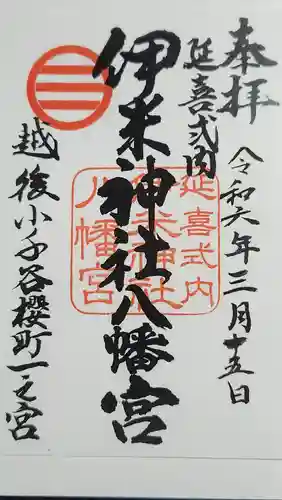 奉拝
令和六年三月十五日
延喜式内
伊米神社八幡宮
延喜式内
伊米神社
八幡宮
越後小千谷櫻町一之宮